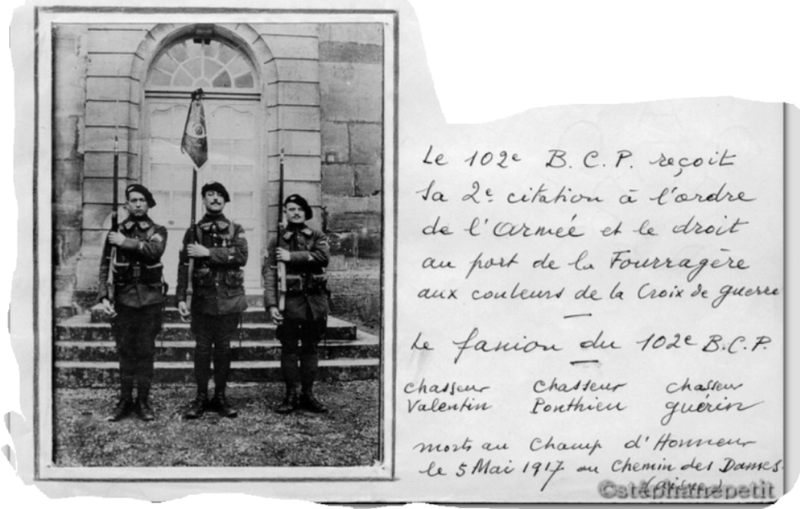 Le 102e B.C.P. reçoit
sa 2e citation à l'ordre
de l'Armée et le droit
au port de la Fourragère
aux couleurs de la Croix de guerre
Le fanion du 102e B.C.P.
chasseur chasseur chasseur
Valentin Ponthieu guérin
morts au Champ d'Honneur
le 5 Mai 1917 au Chemin des Dames
(aisne)
©stéphanepetit